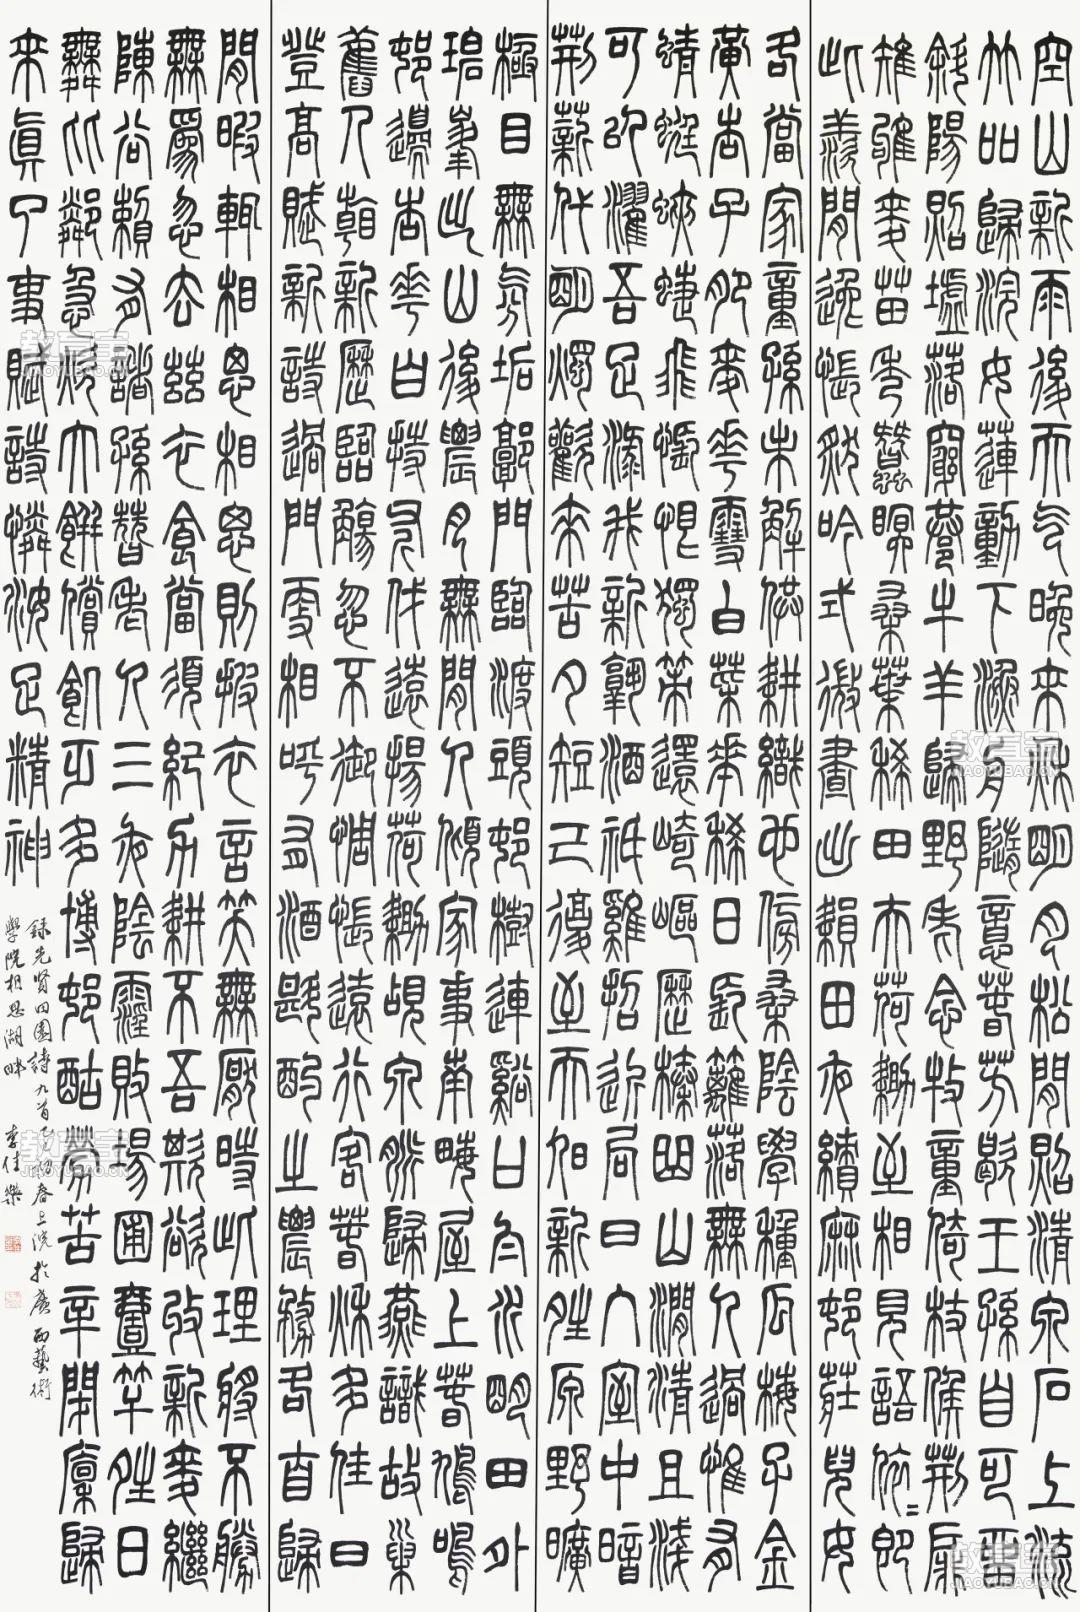 空山新雨後天气晚來秋明月松間照清泉石上流
竹喧歸浣女蓮動下漁舟隨意春芳歇王孫自可留
斜陽照墟落窮巷牛羊歸野老念牧童倚杖候荊扉
雉雊麥苗秀蠶眠桑葉稀田夫荷鋤至相見語依=即
此羨閒逸悵然吟式微晝出耘田夜績麻村莊兒女
各當家童孫未解供耕織也傍桑陰學種瓜梅子金
黃杏子肥麥花雪白菜花稀日長籬落無人過惟有
蜻蜓蛺蝶飛悵恨獨策還崎嶇歷榛曲山澗清且淺
可以濯吾足漉我新熟酒隻雞招近局日入室中暗
荊薪代明燭歡來苦夕短已復至天旭新晴原野曠
極目無氛垢郭門臨渡頭村樹連谿口白水明田外
碧峯出山後農月無閒人傾家事南畝屋上春鳩鳴
村邊杏花白持斧伐遠揚荷鋤覘泉脈歸燕識故巢
舊人看新曆臨觴忽不御惆悵遠行客春秋多佳日
登高賦新詩過門更相呼有酒斟酌之農務各自歸
閒暇輒相思相思則披衣言笑無厭時此理將不勝
無為忽去茲衣食當須紀力耕不吾欺欲收新麥繼
陳谷賴有諸孫替老人三夜陰霾敗場圃壹竿晴日
舞比鄰急炊大餅償飢乏多博村酤勞苦辛閉廩歸
來真了事賦詩憐汝足精神
錄先賢田園詩九首初春上浣於廣西藝術
學院相思湖畔 李佳樂
教育宝
JIAOYUBAO.CN